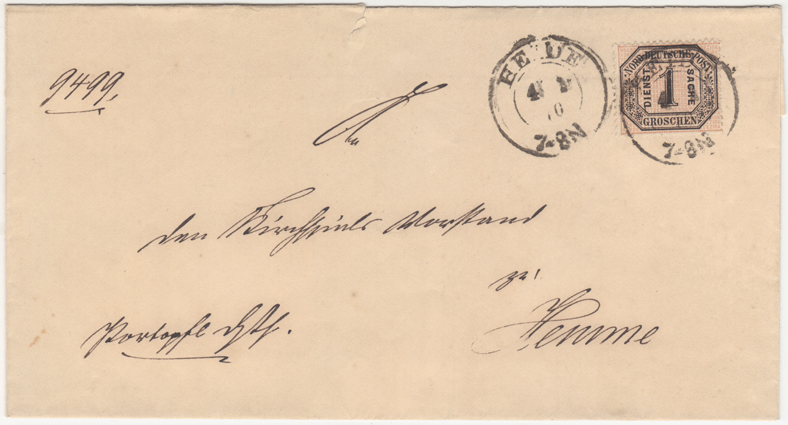 9499.
HEIDE
70
7-8N
NORDDEUTSCHE POST
DIENST SACHE
1
GROSCHEN
7-8N
An
den Kirchspiels Vorstand
zu
Hemme
Portopfl. DSch.